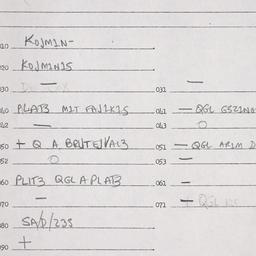 010 KOJM1N-
020 KOJM1N1S
030 — 031 —
040 PLAT3 M1T FAJ1K1S 041 — QGL GSZ1NG
042 — 043 O
050 + Q A BRUTEJVAL3 051 — QGL AR1M D
052 O 053 —
060 PL1T3 QGL A PLAT3 061 —
070 — 071 —
080 SA/D/23S
090 +